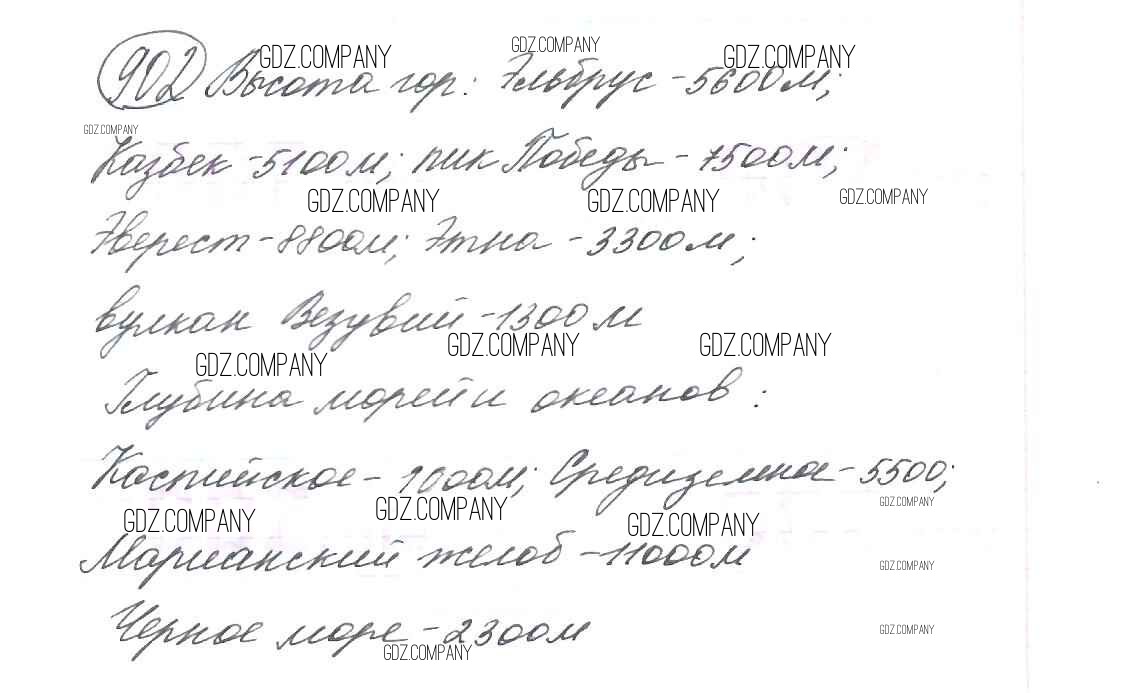 GDZ.COMPANY GDZ.COMPANY GDZ.COMPANY
902 Высота гор: Эльбрус - 5600 м;
GDZ.COMPANY
Казбек - 5100 м; пик Победы - 7500 м;
GDZ.COMPANY GDZ.COMPANY GDZ.COMPANY
Эверест - 8800 м; Этна - 3300 м;
вулкан Везувий - 1300 м
GDZ.COMPANY GDZ.COMPANY GDZ.COMPANY
Глубина морей и океанов:
Каспийское - 1000 м; Средиземное - 5500;
GDZ.COMPANY GDZ.COMPANY GDZ.COMPANY GDZ.COMPANY
Марианский желоб - 11000 м
GDZ.COMPANY
Черное море - 2300 м
GDZ.COMPANY GDZ.COMPANY